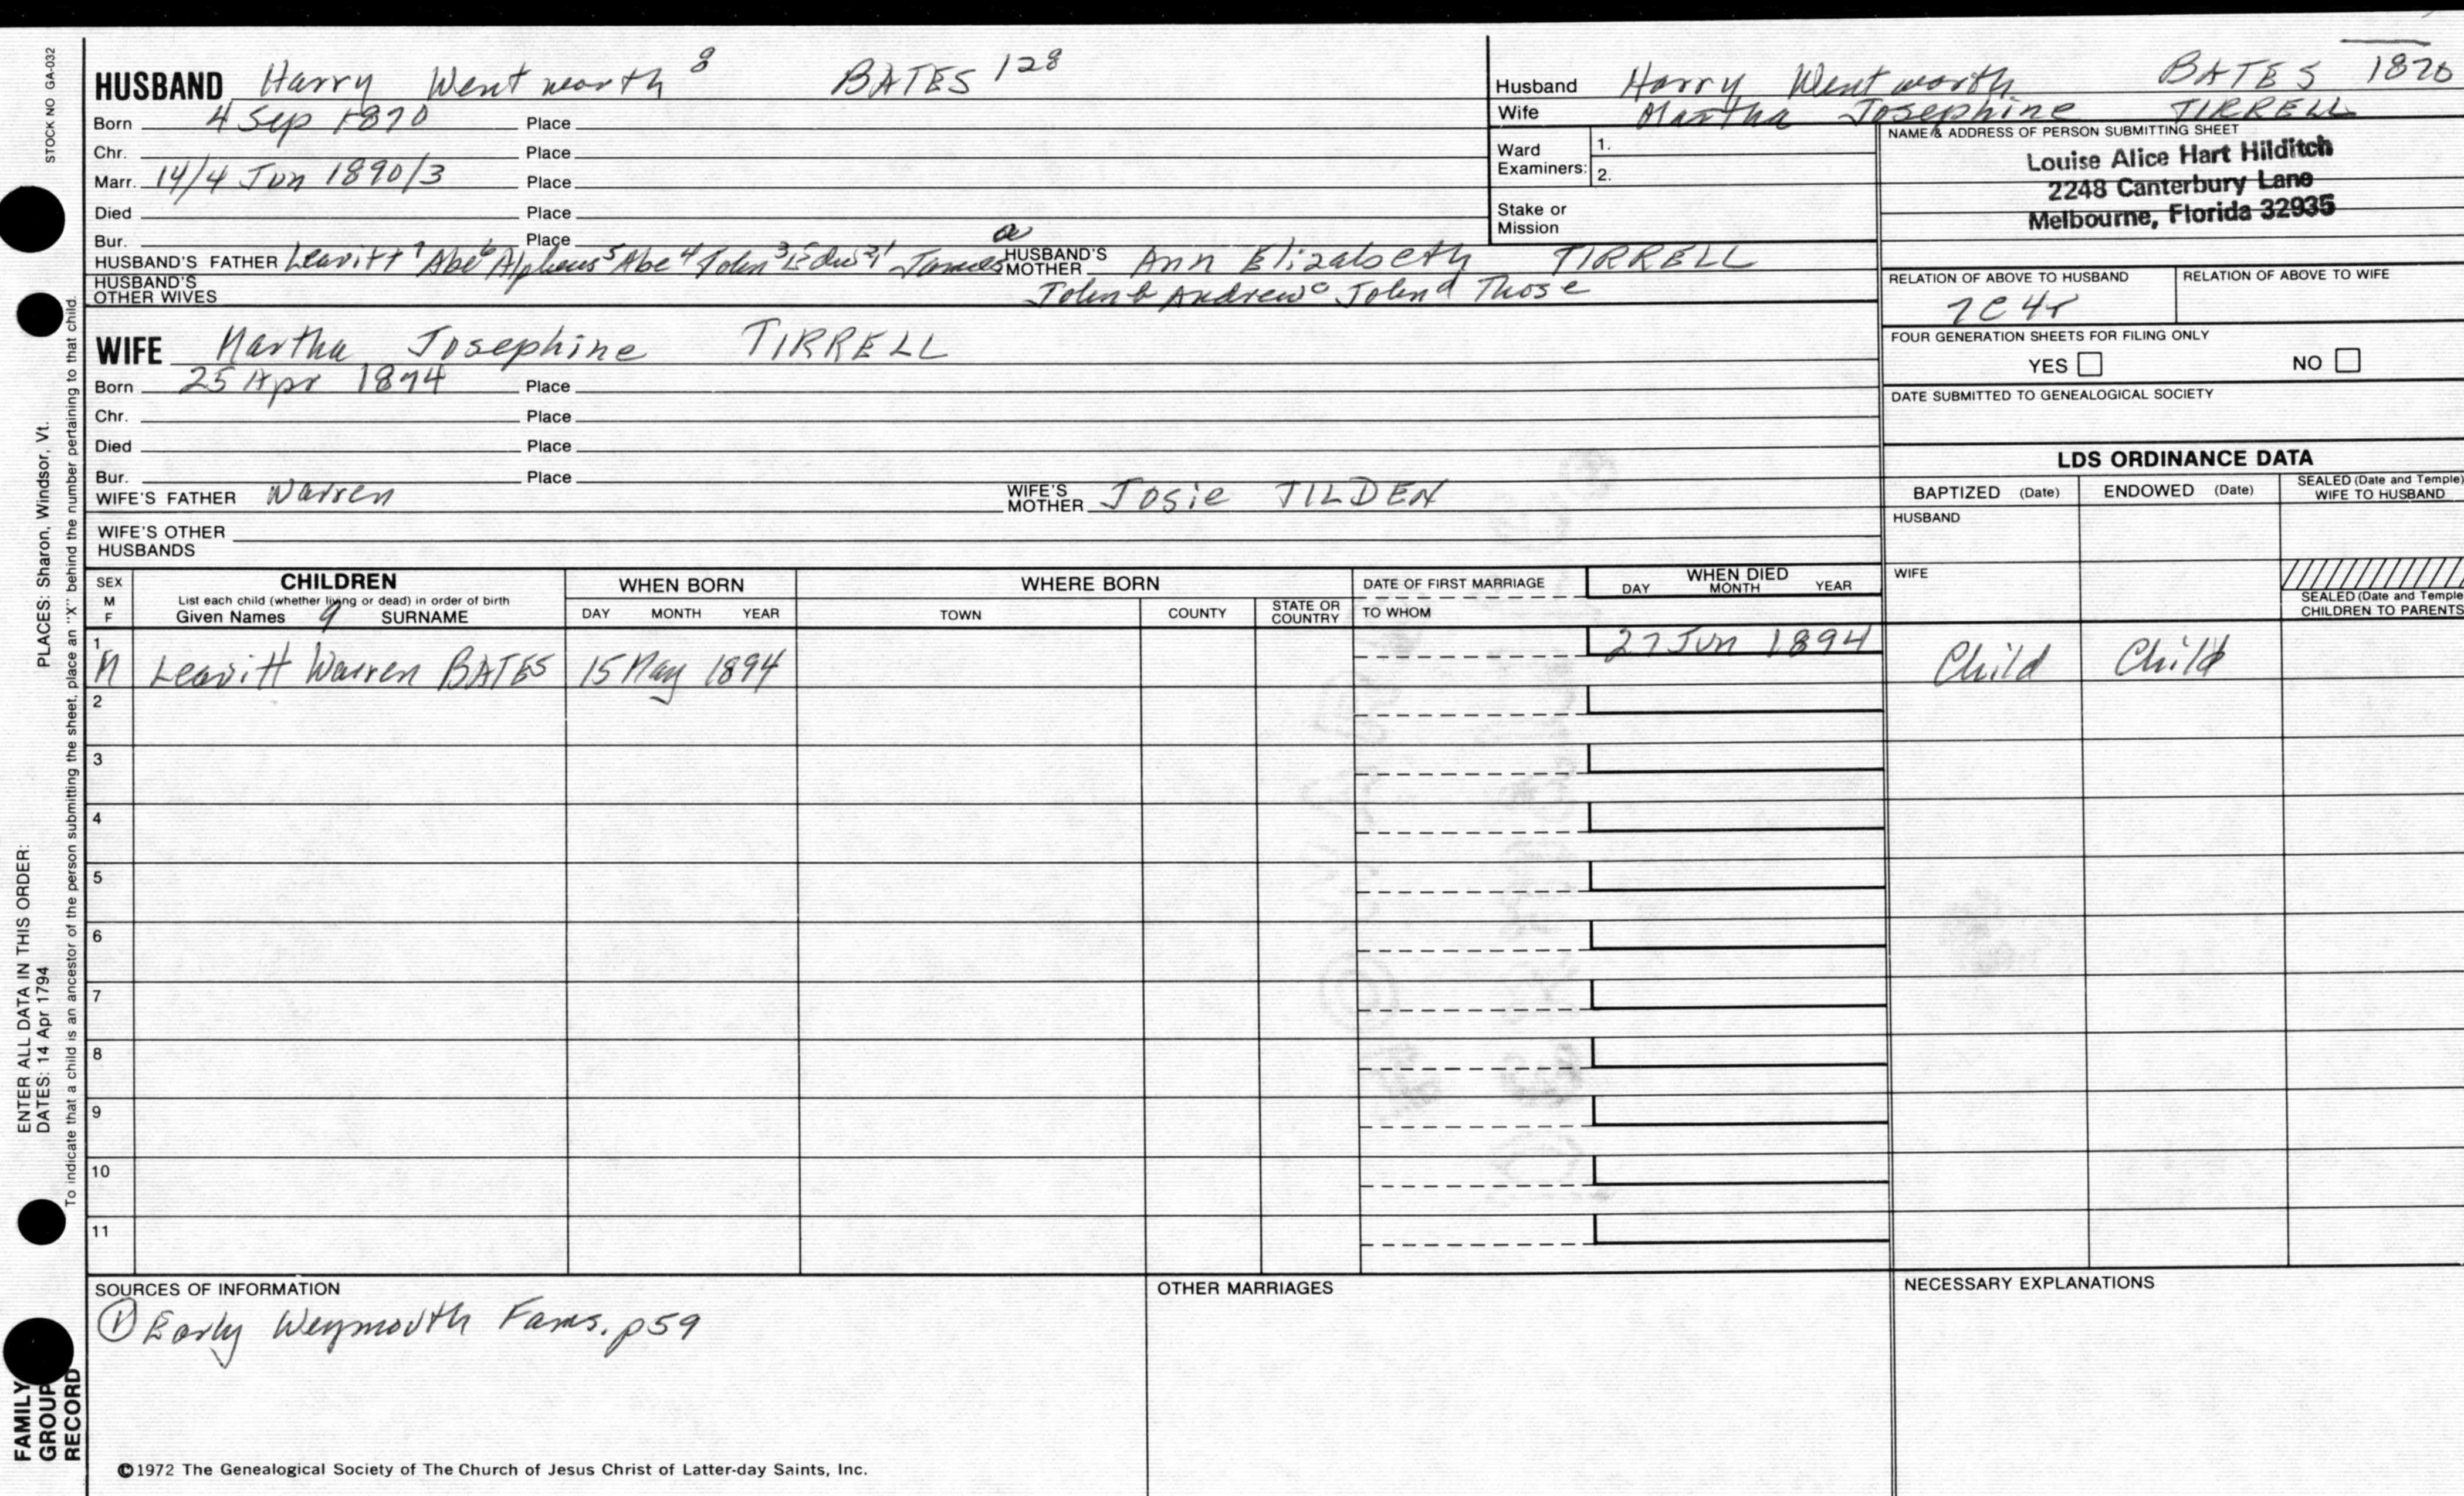 STOCK NO GA-032
HUSBAND Harry Wentworth 8 BATES 128
Born 4 Sep 1870 Place
Chr. Place
Marr. 14/4 Jun 1890/3 Place
Died Place
Bur. Place
HUSBAND'S FATHER Leavitt 7 Abe 6 Alpheus 5 Abe 4 John 3 Edw 2 1 James HUSBAND'S MOTHER Ann Elizabeth a TIRRELL
HUSBAND'S OTHER WIVES
John b Andrew c John d Thos e
WIFE Martha Josephine TIRRELL
Born 25 Apr 1874 Place
Chr. Place
Died Place
Bur. Place
WIFE'S FATHER Warren WIFE'S MOTHER Josie TILDEN
WIFE'S OTHER HUSBANDS
Husband Harry Wentworth BATES 1870
Wife Martha Josephine TIRRELL
Ward Examiners: 1.
2.
Stake or Mission
NAME & ADDRESS OF PERSON SUBMITTING SHEET
Louise Alice Hart Hilditch
2248 Canterbury Lane
Melbourne, Florida 32935
RELATION OF ABOVE TO HUSBAND RELATION OF ABOVE TO WIFE
7C4r
FOUR GENERATION SHEETS FOR FILING ONLY
YES NO
DATE SUBMITTED TO GENEALOGICAL SOCIETY
LDS ORDINANCE DATA
BAPTIZED (Date) ENDOWED (Date) SEALED (Date and Temple) WIFE TO HUSBAND
HUSBAND
WIFE
SEALED (Date and Temple CHILDREN TO PARENTS
SEX M F
CHILDREN
List each child (whether living or dead) in order of birth
Given Names 9 SURNAME
WHEN BORN
DAY MONTH YEAR
WHERE BORN
TOWN COUNTY STATE OR COUNTRY
DATE OF FIRST MARRIAGE
TO WHOM
WHEN DIED
DAY MONTH YEAR
1 M Leavitt Warren BATES 15 May 1894 27 Jun 1894 Child Child
2
3
4
5
6
7
8
9
10
11
SOURCES OF INFORMATION
① Early Weymouth Fams. p59
OTHER MARRIAGES
NECESSARY EXPLANATIONS
©1972 The Genealogical Society of The Church of Jesus Christ of Latter-day Saints, Inc.
ENTER ALL DATA IN THIS ORDER:
DATES: 14 Apr 1794 PLACES: Sharon, Windsor, Vt.
To indicate that a child is an ancestor of the person submitting the sheet, place an "X" behind the number pertaining to that child.
FAMILY
GROUP
RECORD